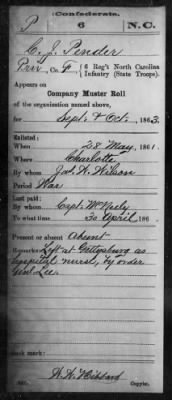 Confederate.
P 6 N.C.
C. J. Pender
Priv, Co. G, 6 Reg't North Carolina
Infantry (State Troops).
Appears on
Company Muster Roll
of the organization named above,
for Sept. & Oct., 1863.
Enlisted:
When 28 May, 1861.
Where Charlotte
By whom Jas. W. Wilson
Period War
Last paid:
By whom Capt. McNeely
To what time 30 April, 186
Present or absent Absent
Remarks: Left at Gettysburg as
hospital nurse, by order
Genl Lee.
Book mark:
W. H. Hibbard
Copyist.